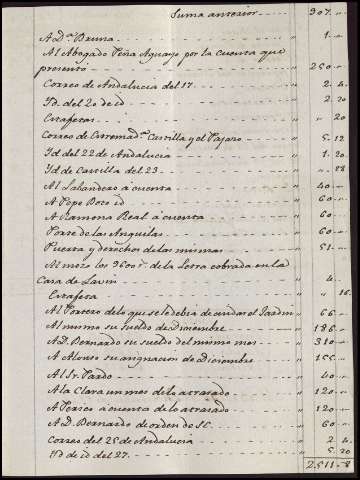 Suma anterior - - - - 907. "
A Dª Bruna - - - - " 1. "
Al Abogado Peña Aguayo por la cuenta que
presentó - - - - " 250 "
Correo de Andalucia del 17 - - - - " 2. 4.
Yd. del 20 de id - - - - " 2. 20
Estafetas - - - - " " 20
Correo de Estremadª Castilla y el Pajaro - - " 5. 12
Yd del 22 de Andalucia - - - - " 1. 20
Yd de Castilla del 23 - - - - " " 28
Al Labandero a cuenta - - - - " 40 "
A Pepe Bozo id - - - - " 60 "
A Ramona Real a cuenta - - - - " 60 "
Porte de las Anguilas - - - - " 60 "
Puerta y derechos de las mismas - - - - " 51 "
Al mozo los 9600 rs de la Letra cobrada en la
Casa de Lavin - - - - " 4. "
Estafeta " " 16
Al Portero de lo que se le debia de cuidar el Jardin " 66 "
Al mismo su sueldo de Diciembre - - - - " 186 "
A D. Bernardo su sueldo del mismo mes - - " 310 "
A Alonso su asignacion de Diciembre - - " 155 "
Al Sr. Pardo - - - - " 40 "
A la Clara un mes de lo atrasado - - - - " 120 "
A Perico a cuenta de lo atrasado - - - - " 120 "
A D. Bernardo de orden de SE - - - - " 60 "
Correo del 25 de Andalucia - - - - " 2 4.
Yd de id del 27. - - - - " 5. 20
2.511.. 8